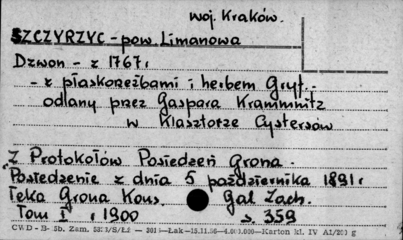 woj. Kraków.
SZCZYRZYC - pow. Limanowa
Dzwon - z 1767 r
- z płaskorzeźbami i herbem Gryf -
odlany przez Gaspara Krammnitz
w Klasztorze Cystersów
Z Protokołów Posiedzeń Grona.
Posiedzenie z dnia 5 października 1891 r
Teka Grona Kons. Gal Zach.
Tom I r 1900 s. 359